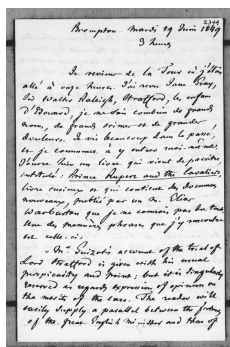 2344
Brompton mardi 19 Juin 1849
3 heures
Je reviens de la Tour où j'étais
allé à onze heures. J'ai revu Jane Gray,
Sir Walter Raleigh, Strafford, les enfans
d'Edouard, je ne sais combien de grands
noms, de grands crimes et de grandes
douleurs. Je vis beaucoup dans le passé,
et je commence à y entrer moi-même.
J'ouvre hier un livre qui vient de paraître
intitulé : Prince Rupert and the Cavaliers,
livre curieux et qui contient des documens
nouveaux, publié par un M. Eliot
Warburton que je ne connois pas du tout
une des premières phrases que j'y rencontre
est celle-ci :
"Mr. Guizot's account of the trial of
Lord Strafford is given with his usual
perspicacity and point ; but it is singularly
reserved as regards expression of opinion on
the merits of the case. The reader will
easily supply a parallel between the
of the great English minister and that of